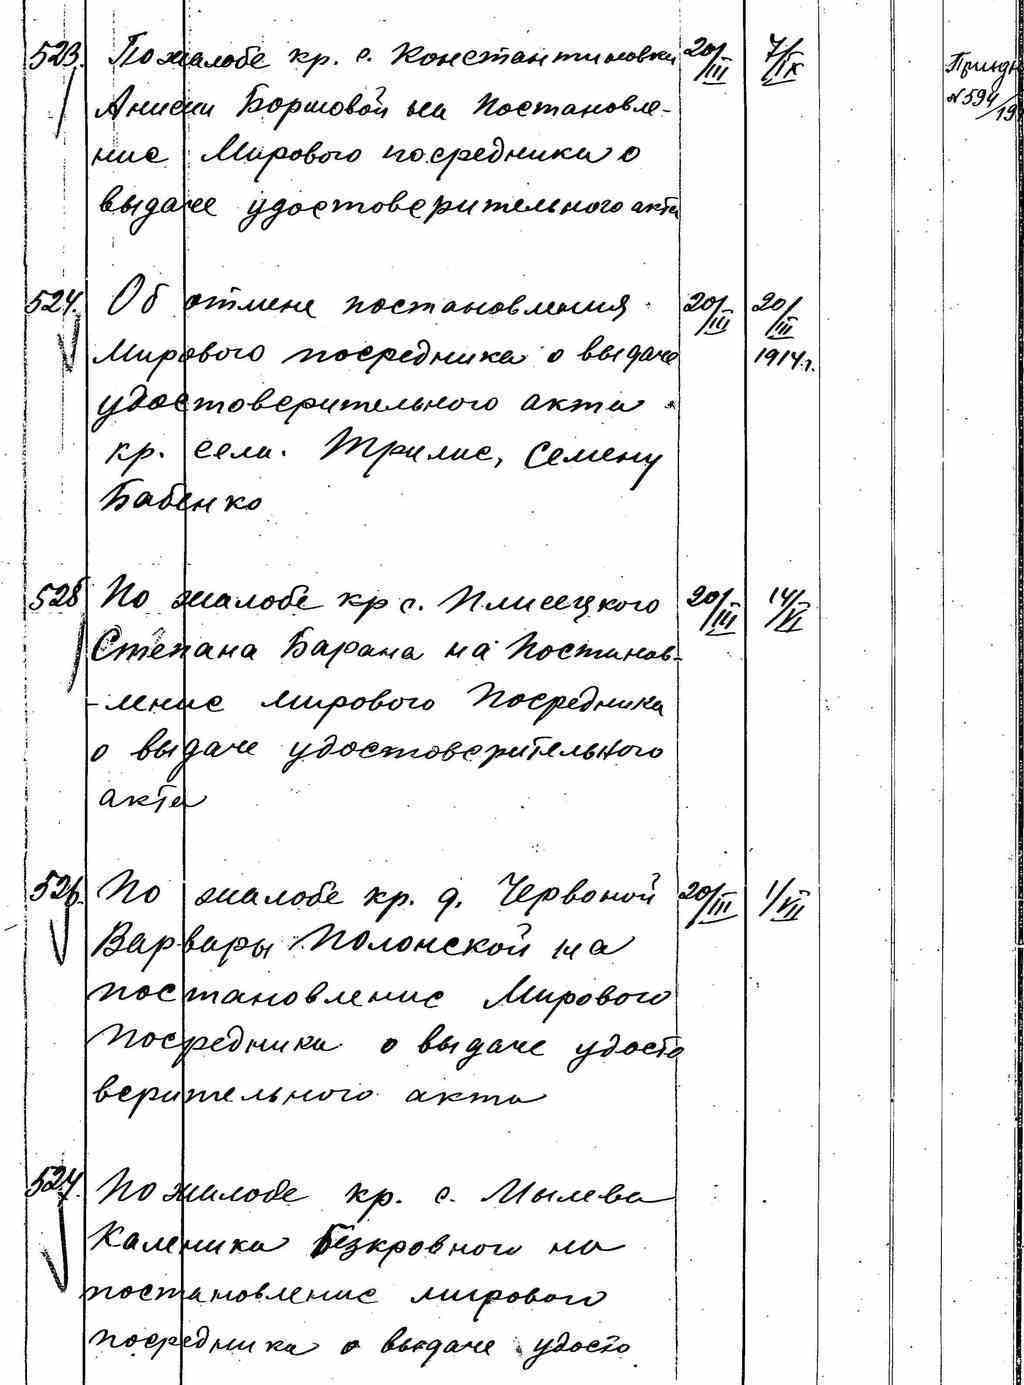 523. По жалобе кр. с. Константиновки 20/III 7/IX
Анисии Боршовой на Постановле-
ние Мирового посредника о
выдаче удостоверительного акта
№ 594/19
524. Об отмене постановления 20/III 20/III
Мирового посредника о выдаче 1914 г.
удостоверительного акта
кр. села. Трилис, Семену
Бабенко
525 По жалобе кр с. Плисецкого 20/III 14/VI
Степана Барана на Постанов-
-ление мирового Посредника
о выдаче удостоверительного
акта
526. По жалобе кр. д. Червоной 20/III 1/VII
Варвары Полонской на
постановление Мирового
Посредника о выдаче удосто
верительного акта
527. По жалобе кр. с. Мылева
Каленика Безкровного на
постановление мирового
посредника о выдаче удосто